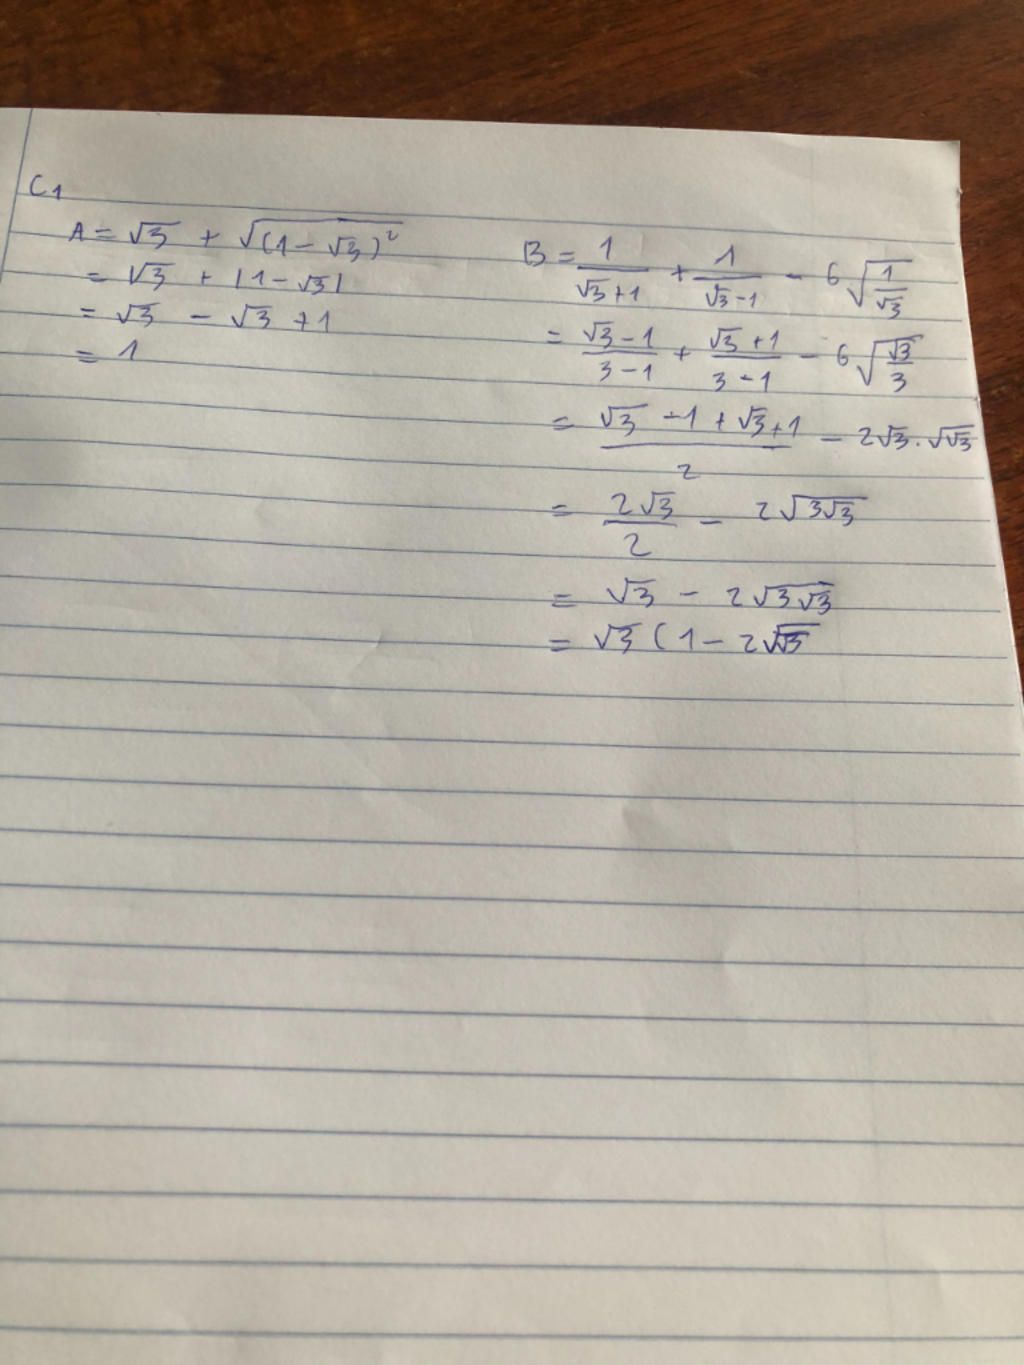 C1
A = √3 + √(1 - √3)²
= √3 + |1 - √3|
= √3 - √3 + 1
= 1
B = 1/(√3+1) + 1/(√3-1) - 6√(1/√3)
= (√3-1)/(3-1) + (√3+1)/(3-1) - 6√(√3/3)
= (√3 - 1 + √3+1)/2 - 2√3 . √√3
= 2√3/2 - 2√(3√3)
= √3 - 2√(3√3)
= √3 (1 - 2√√3